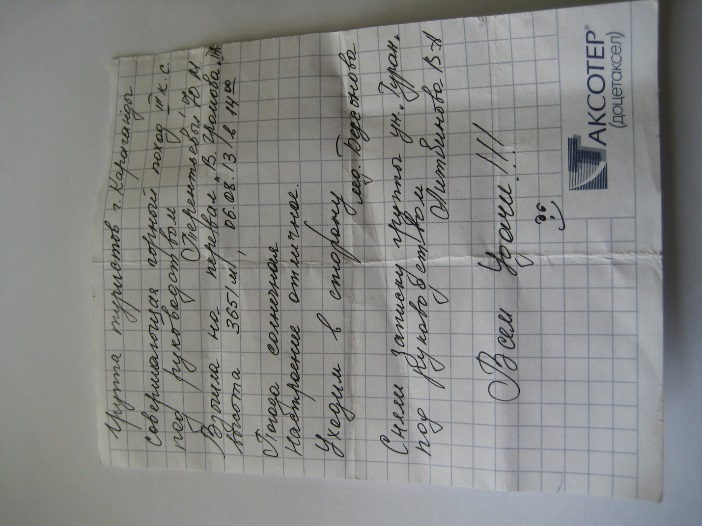 Группа туристов г. Караганды
совершающая горный поход III к.с.
под руководством
Терентьевой Ю М
Взошла на перевал „В. Громова."
высота 3651 м, 06.08.13 / в 14 00
Погода солнечная
Настроение отличное.
Уходим в сторону
лед. Бессонова
Сняли записку группы ун. „Туран"
под руководством
Литвинова В А
Всем Удачи!!!
АКСОТЕР®
(доцетаксел)